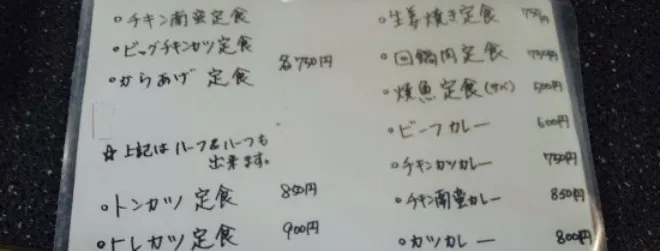 ・チキン南蛮定食
・ビッグチキンカツ定食
・からあげ 定食 各750円
☆上記はハーフ&ハーフも
出来ます。
・トンカツ 定食 850円
・ヒレカツ定食 900円
・生姜焼き定食 750円
・回鍋肉定食 750円
・焼魚定食(サバ) 500円
・ビーフカレー 600円
・チキンカツカレー 750円
・チキン南蛮カレー 850円
・カツカレー 800円